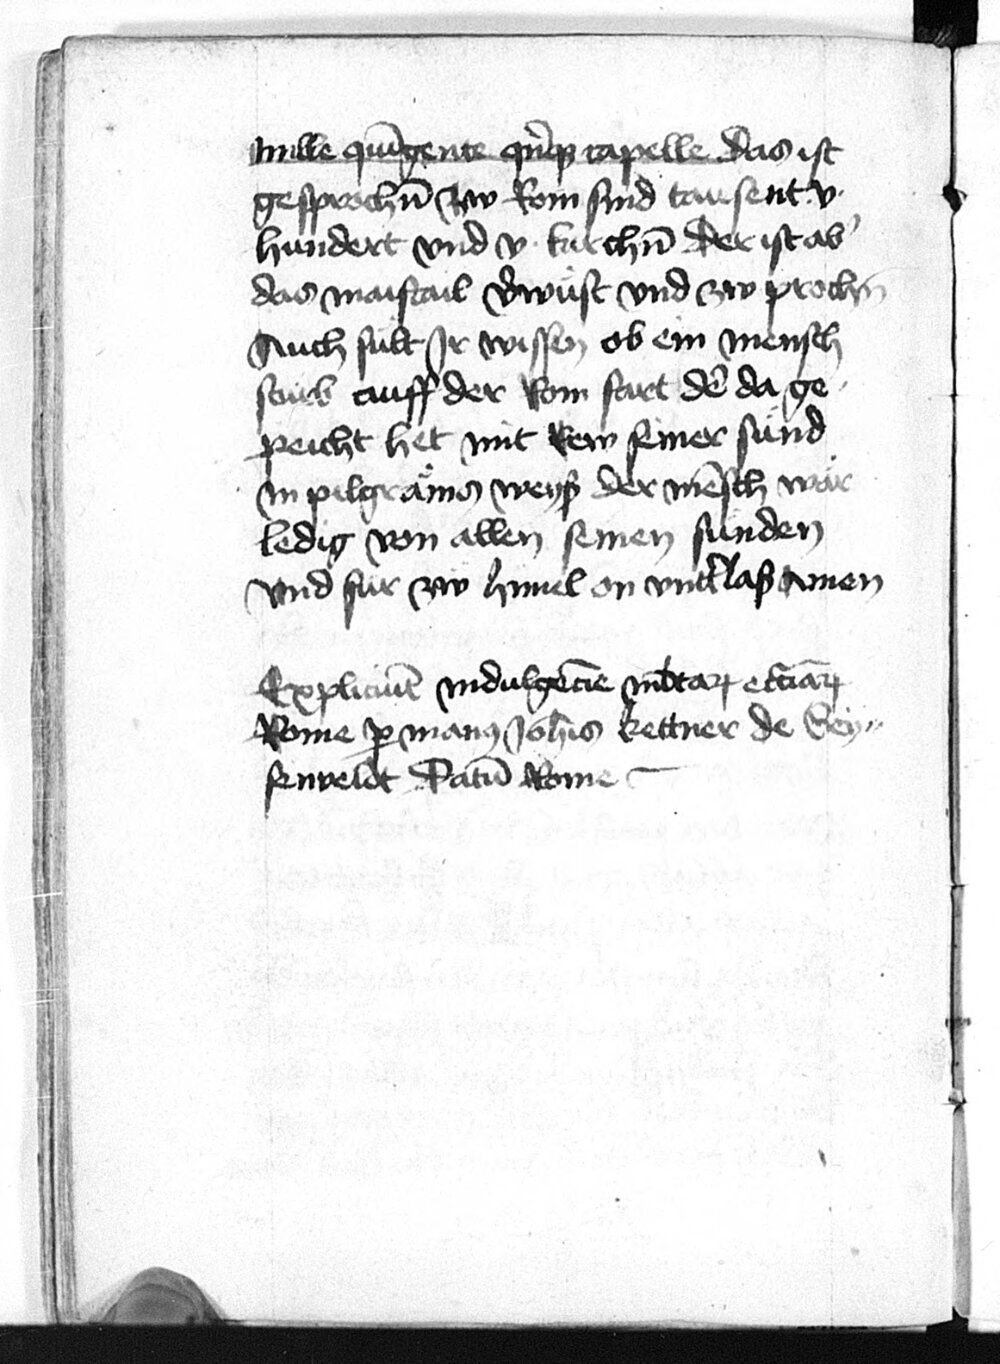 mille quīgente qn̄qȝ capelle Das ist
gesprochn̄ zw Rom sind tausent v·
hundert vnd v· kirchn̄ Der ist ab'
das maistail v̄wüst vnd zw prochn̄
Auch sült Jr wissen ob ein mensch
staub auff der Rom fart dē da ge
peicht het mit Rew seiner sünd
in pilgrāms weyß der mēsch wär
ledig von allen seinen sünden
vnd für zw himel on vnt̄laß Amen
Expliciūt indulgēcie vrbiū eccīaꝝ
Rome ꝑ manꝰ Joh̄is kettner de Gey
senveldt Datū Rome